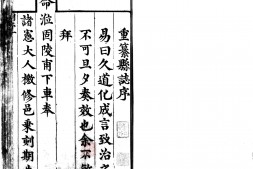 重纂縣誌序
易曰久道化成言致治之
不可旦夕奏效也余不敏
拜
命涖固陵甫下車奉
諸憲大人檄修邑乘刻期